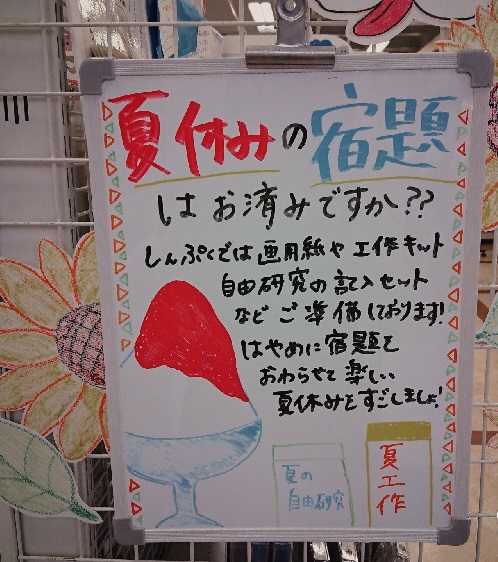 夏休みの宿題
はお済みですか??
しんぷくでは画用紙や工作キット
自由研究の記入セット
などご準備しております!
はやめに宿題を
おわらせて楽しい
夏休みをすごしましょ!
夏の
自由研究
夏
工
作